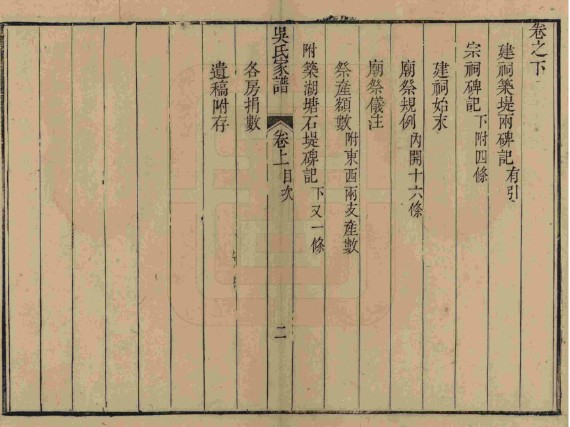 卷之下
建祠築堤兩碑記有引
宗祠碑記下附四條
建祠始末
廟祭規例內開十六條
廟祭儀注
祭產額數附東西兩支產數
附築湖塘石堤碑記下又一條
吳氏家譜 卷上 目次 二
各房捐數
遺稿附存